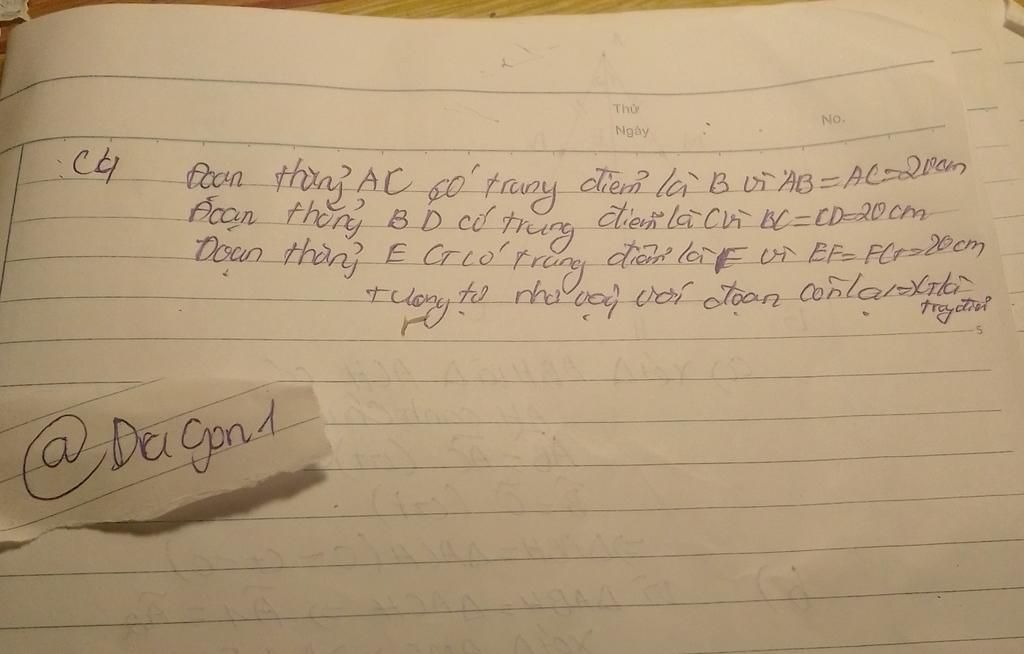 Thứ
Ngày
No.
C4
Đoạn thẳng AC có trung điểm là B vì AB = AC = 20cm
Đoạn thẳng BD có trung điểm là C vì BC = CD = 20cm
Đoạn thẳng EG có trung điểm là F vì EF = FG = 20cm
tương tự như vậy với đoạn còn lại
trung điểm
5
@Dragon1